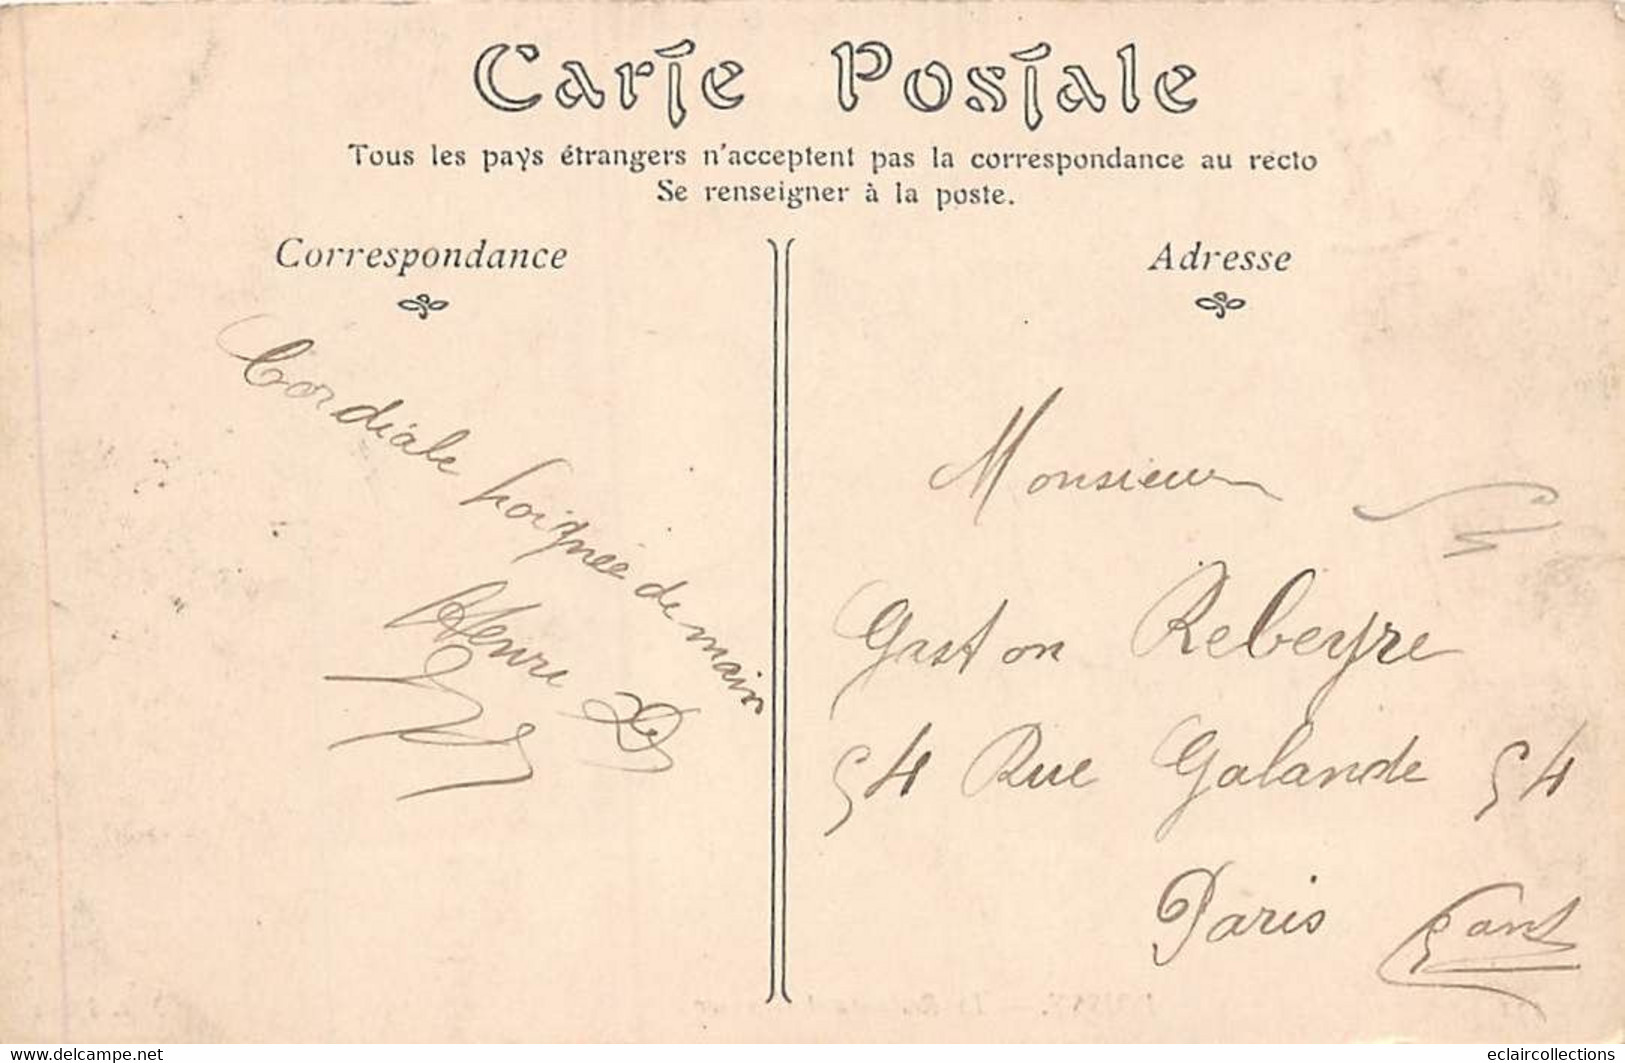 Carte Postale
Tous les pays étrangers n'acceptent pas la correspondance au recto
Se renseigner à la poste.
Correspondance
Cordiale poignée de main
Henri
Adresse
Monsieur
Gaston Rebeyre
54 Rue Galande 54
Paris
www.delcampe.net
eclaircollections